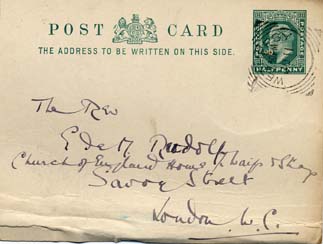 POST CARD
THE ADDRESS TO BE WRITTEN ON THIS SIDE.
HALFPENNY
The Rev
E de M Rudolf
Church of England Home f. Waifs & Strays
Savoy Street
London W.C.